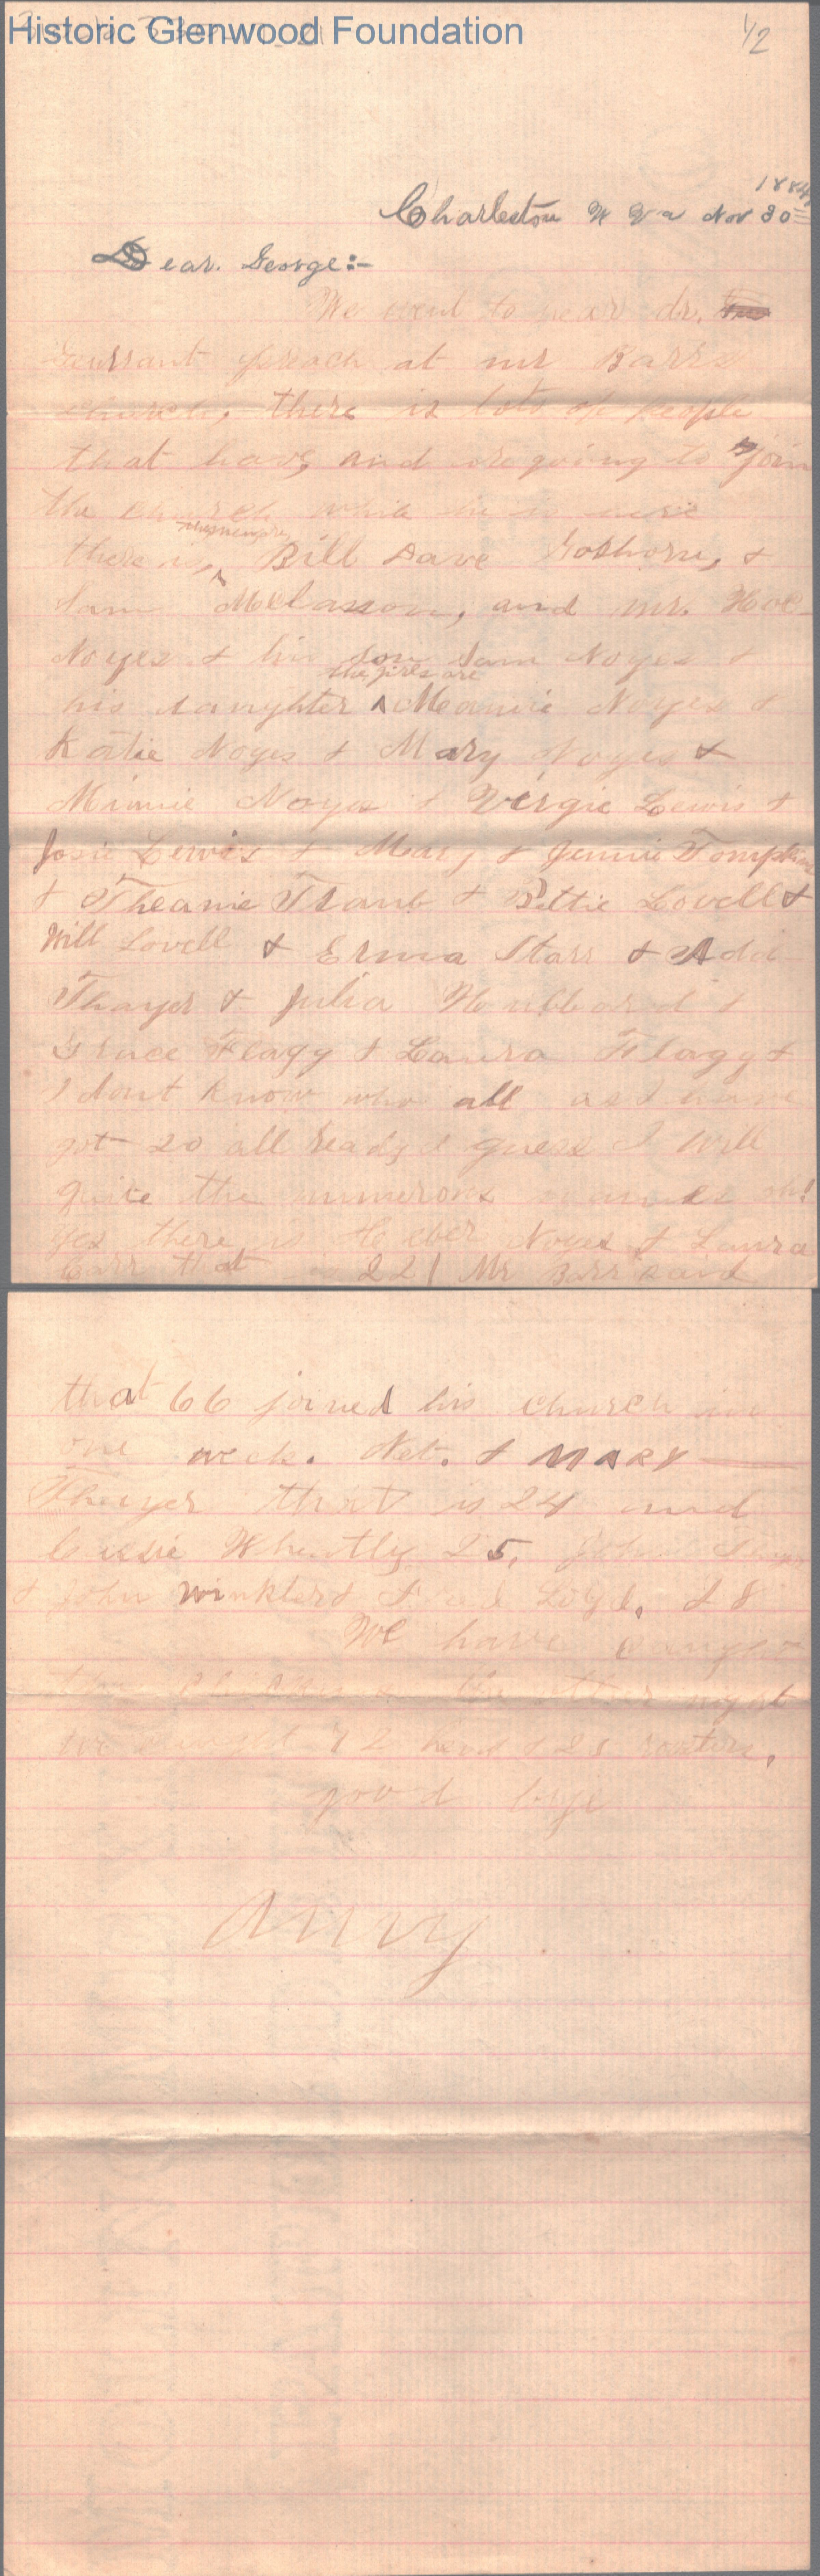 Historic Glenwood Foundation
1/2
1884
Charleston W Va Nov 30
Dear. George:-
We went to hear dr.
Gurrant preach at mr Barrs
church, there is lots of people
that have, and are going to join
the church while he is here
there is, Bill Dave Goshorn, &
Sam, and mr.
Noyes & his son Sam Noyes &
the girls are
his daughter ^ Meanie Noyes &
Katie Noyes & Mary Noyes &
Minnie Noyes & Virgie Lewis &
Josie Lewis & Mary & Jennie Tompkins
& Theanie & Bettie Lovell &
Will Lovell & Erma Starr & Add
Thayer & Julia Hubbard &
Grace Flagg & Laura Flagg &
I dont know who all as I have
got 20 all ready I guess I will
quite the numerous names oh!
yes there is Heber Noyes & Laura
Barr that is 22 ! Mr Barr said
that 66 joined his church in
one week. Net. & MARY
Thayer that is 24 and
Cassie Wheatly 25, John
& John Winkler & Loyd. 28
We have caught
the chickens the other night
we caught 72 hens & 28 roosters,
good bye